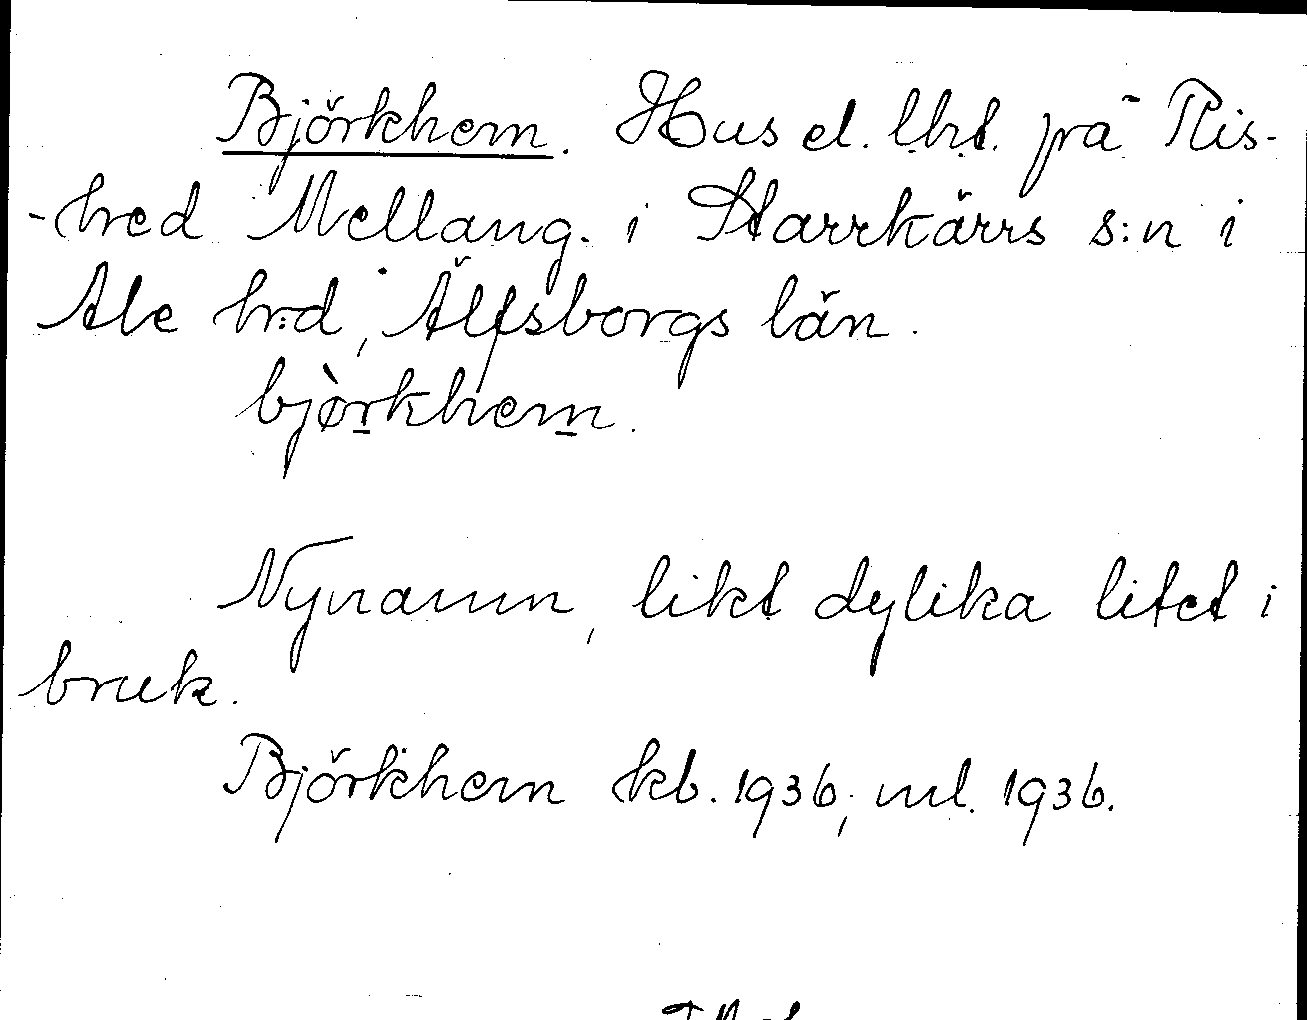 Björkhem. Hus el. lht. på Ris-
-hed Mellang. i Starrkärrs s:n i
Ale hrd, Älfsborgs län.
bjørkhem.
Nynamn, likt dylika litet i
bruk.
Björkhem kb. 1936; ml. 1936.